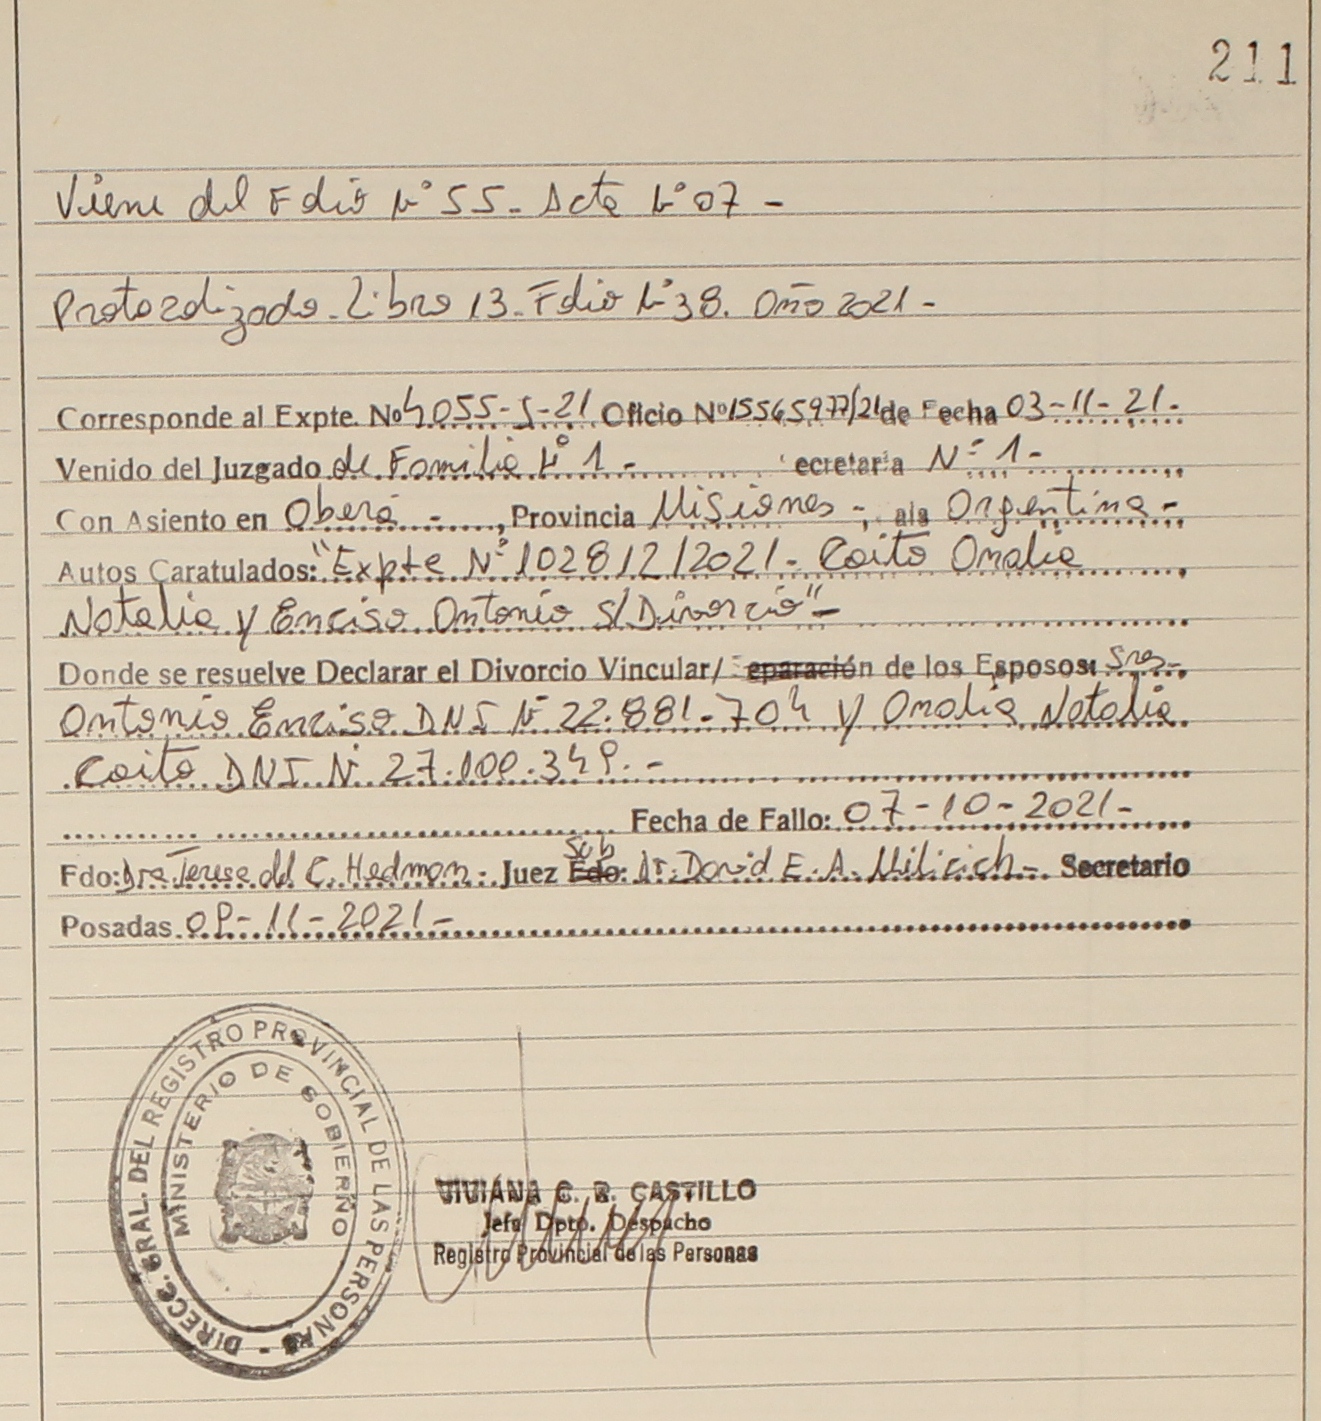 211
Viene del Folio N° 55 - Acta N° 07 -
Protocolizado - Libro 13 - Folio N° 38. Año 2021 -
Corresponde al Expte. Nº 4055-S-21 Oficio Nº 15565977/21 de Fecha 03-11-21.
Venido del Juzgado de Familia N° 1 - ecretaria N° 1 -
Con Asiento en Oberá -, Provincia Misiones -, Argentina -
Autos Caratulados: "Expte N° 102812/2021 - Coito Analia
Natalia y Enciso Antonio S/Divorcio" -
Donde se resuelve Declarar el Divorcio Vincular/ eparación de los Esposos: Sres.
Antonio Enciso DNI N° 22.881.704 y Analia Natalia
Coito DNI N° 27.100.349. -
Fecha de Fallo: 07-10-2021 -
Sub
Fdo: Dra. Teresa del C. Hedman - Juez Fdo: Dr. David E. A. Milicich - Secretario
Posadas 09-11-2021 -
DIRECC. GRAL. DEL REGISTRO PROVINCIAL DE LAS PERSONAS -
MINISTERIO DE GOBIERNO
VIVIANA C. R. CASTILLO
Jefa Dpto. Despacho
Registro Provincial de las Personas